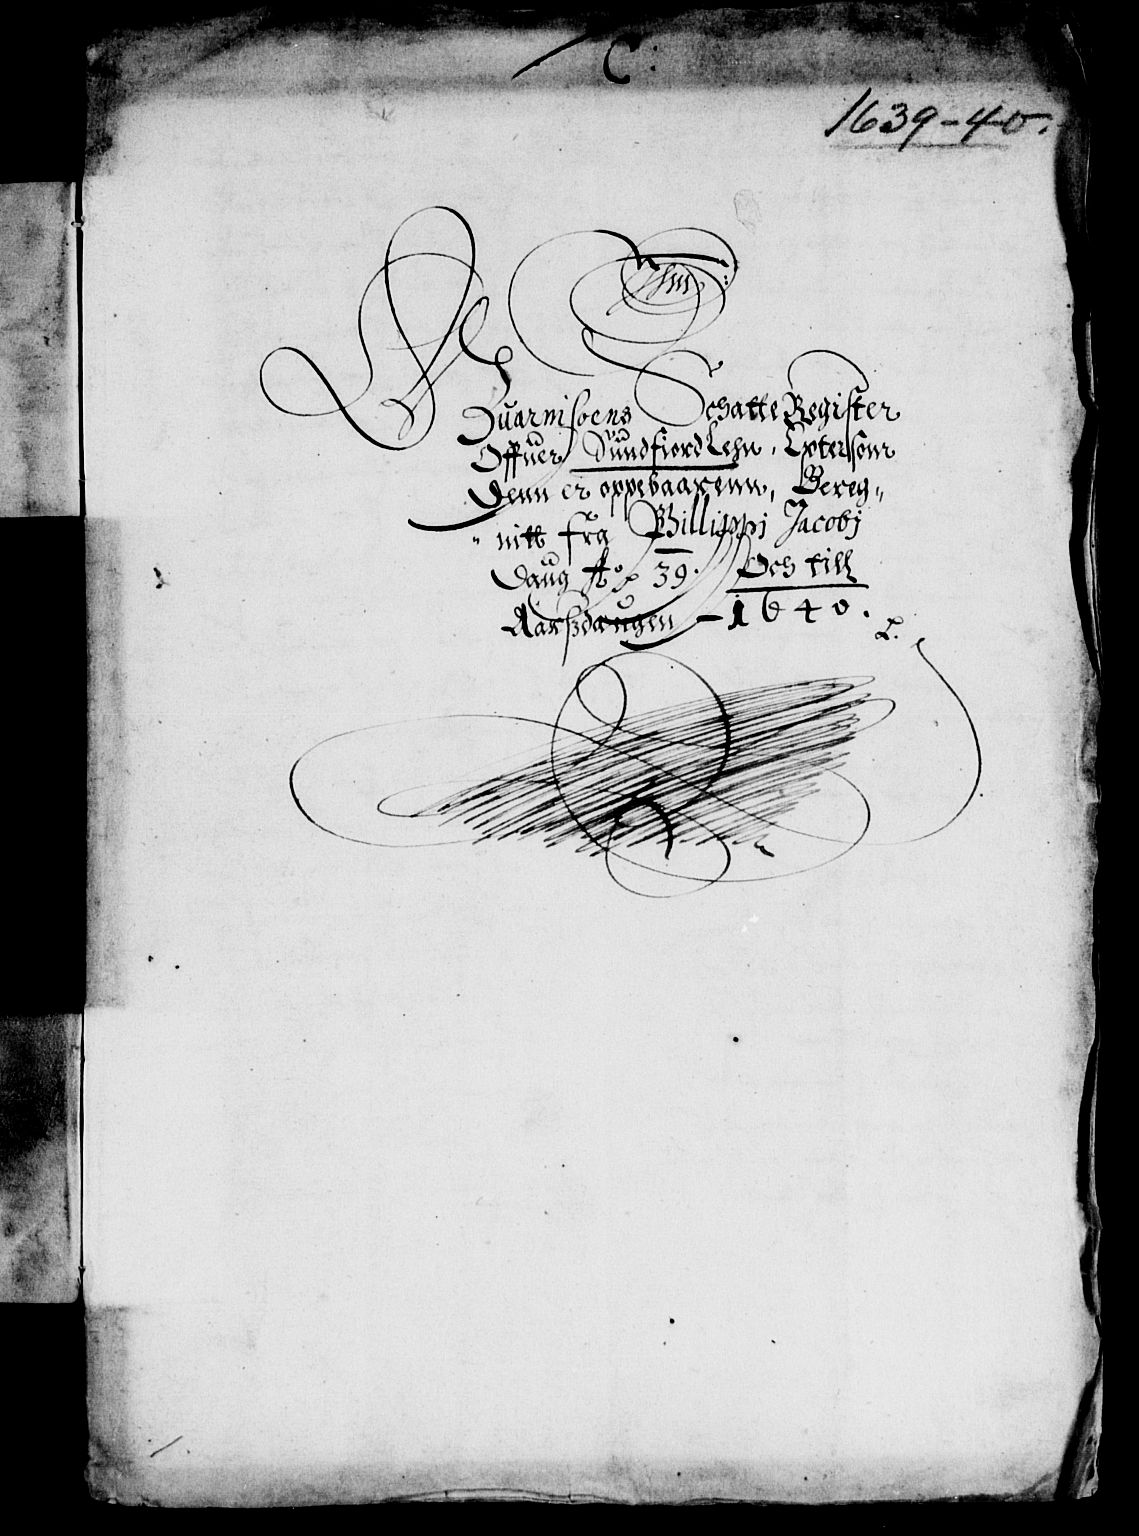 C:
1639-40.
Guarnisoens Schatte Register
Offuer Sundfiord Lehn, Epter som
Denn er oppebaarenn, Bereg„
„nitt fra Phillippi Jacobj
Daug Ao 39. Och till
Aarsdaugen 1640.